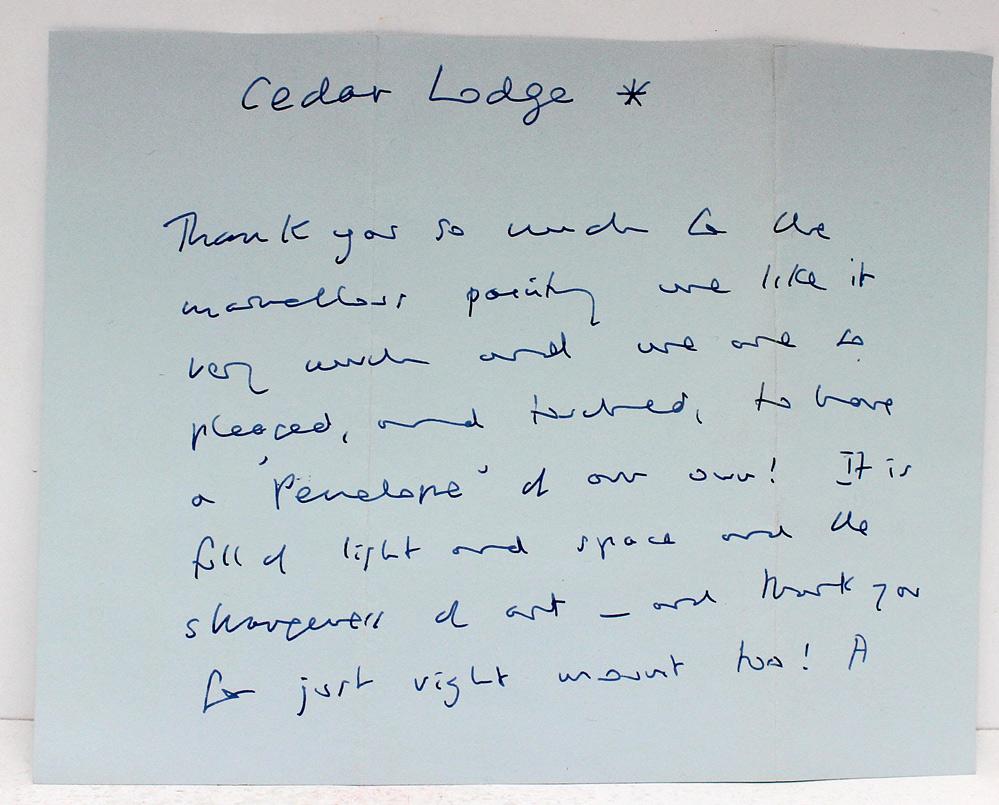 Cedar Lodge *
Thank you so much for the
marvellous painting we like it
very much and we are so
pleased, and touched, to have
a 'Penelope' of our own! It is
full of light and space and the
strangeness of art – and thank you
for just right mount too! A